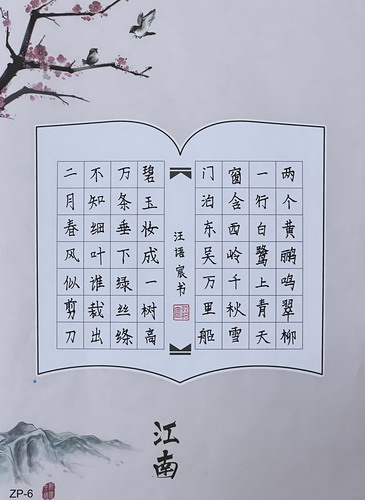 两个黄鹂鸣翠柳
一行白鹭上青天
窗含西岭千秋雪
门泊东吴万里船
汪语宸书
碧玉妆成一树高
万条垂下绿丝绦
不知细叶谁裁出
二月春风似剪刀
江南
ZP-6